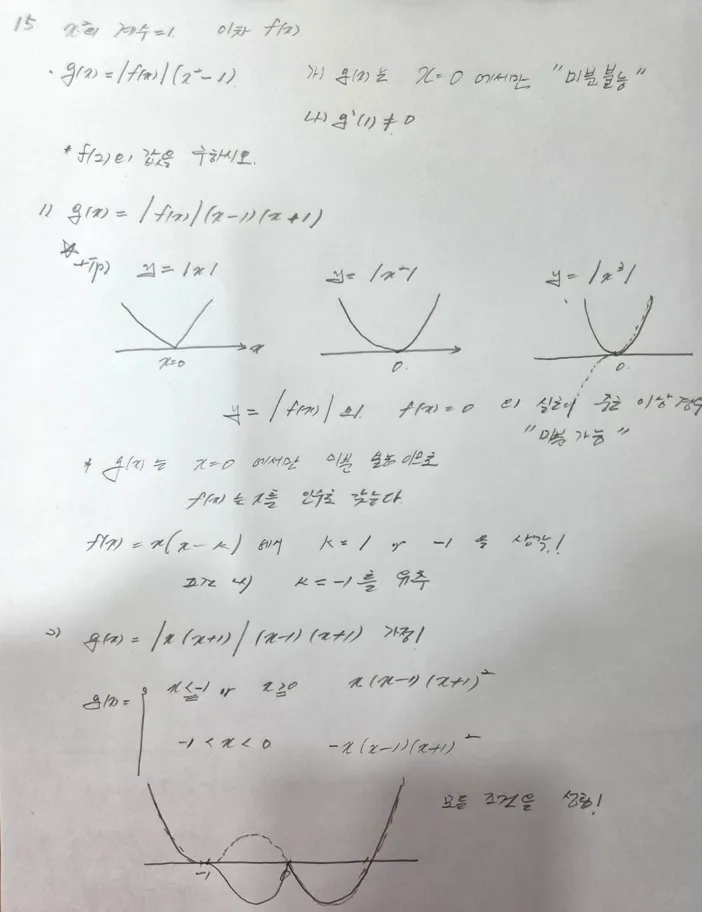 15 x²의 계수=1. 이차 f(x)
· g(x)=|f(x)|(x²-1) 가) g(x)는 x=0 에서만 "미분불능"
나) g'(1)≠0
* f(2)의 값을 구하시오.
1) g(x)=|f(x)|(x-1)(x+1)
☆ +Tip) y=|x| y=|x²| y=|x³|
x=0 x 0. 0.
y=|f(x)|의 f(x)=0 의 실근이 중근 이상 경우
"미분 가능"
* g(x)는 x=0 에서만 미분 불능이므로
f(x)는 x를 인수로 갖는다
f(x)=x(x-k) 에서 k=1 or -1 을 생각!
조건 나) k=-1를 유추
2) g(x)=|x(x+1)|(x-1)(x+1) 가정!
g(x)= x≤-1 or x≥0 x(x-1)(x+1)²
-1<x<0 -x(x-1)(x+1)²
모든 조건을 성립!
-1 0